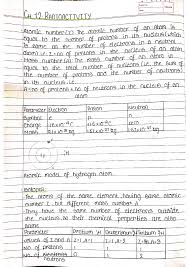 CH 12 RADIOACTIVITY
Atomic number (Z): The atomic number of an atom is
equal to the number of protons in its nucleus (which
is same as the number of electrons in a neutral
atom) i.e. Z = no of protons in the nucleus of an atom
Mass number (A): The mass number of an atom is
equal to the total number of nucleons (i.e. the sum of
the number of protons and the number of neutrons)
in its nucleus i.e.
A = no of protons + no of neutrons in the nucleus of an
atom
Parameter Electron Proton Neutron
Symbol e p n
Charge
Mass
Atomic model of hydrogen atom
ISOTOPES:
The atoms of the same element having same atomic
number Z but different mass number A
They have the same number of electrons outside
the nucleus so their chemical properties are also
same
Parameter Protium
values of Z and A Z=1 A=1 Z=1 A=2
no of protons
no of
neutrons